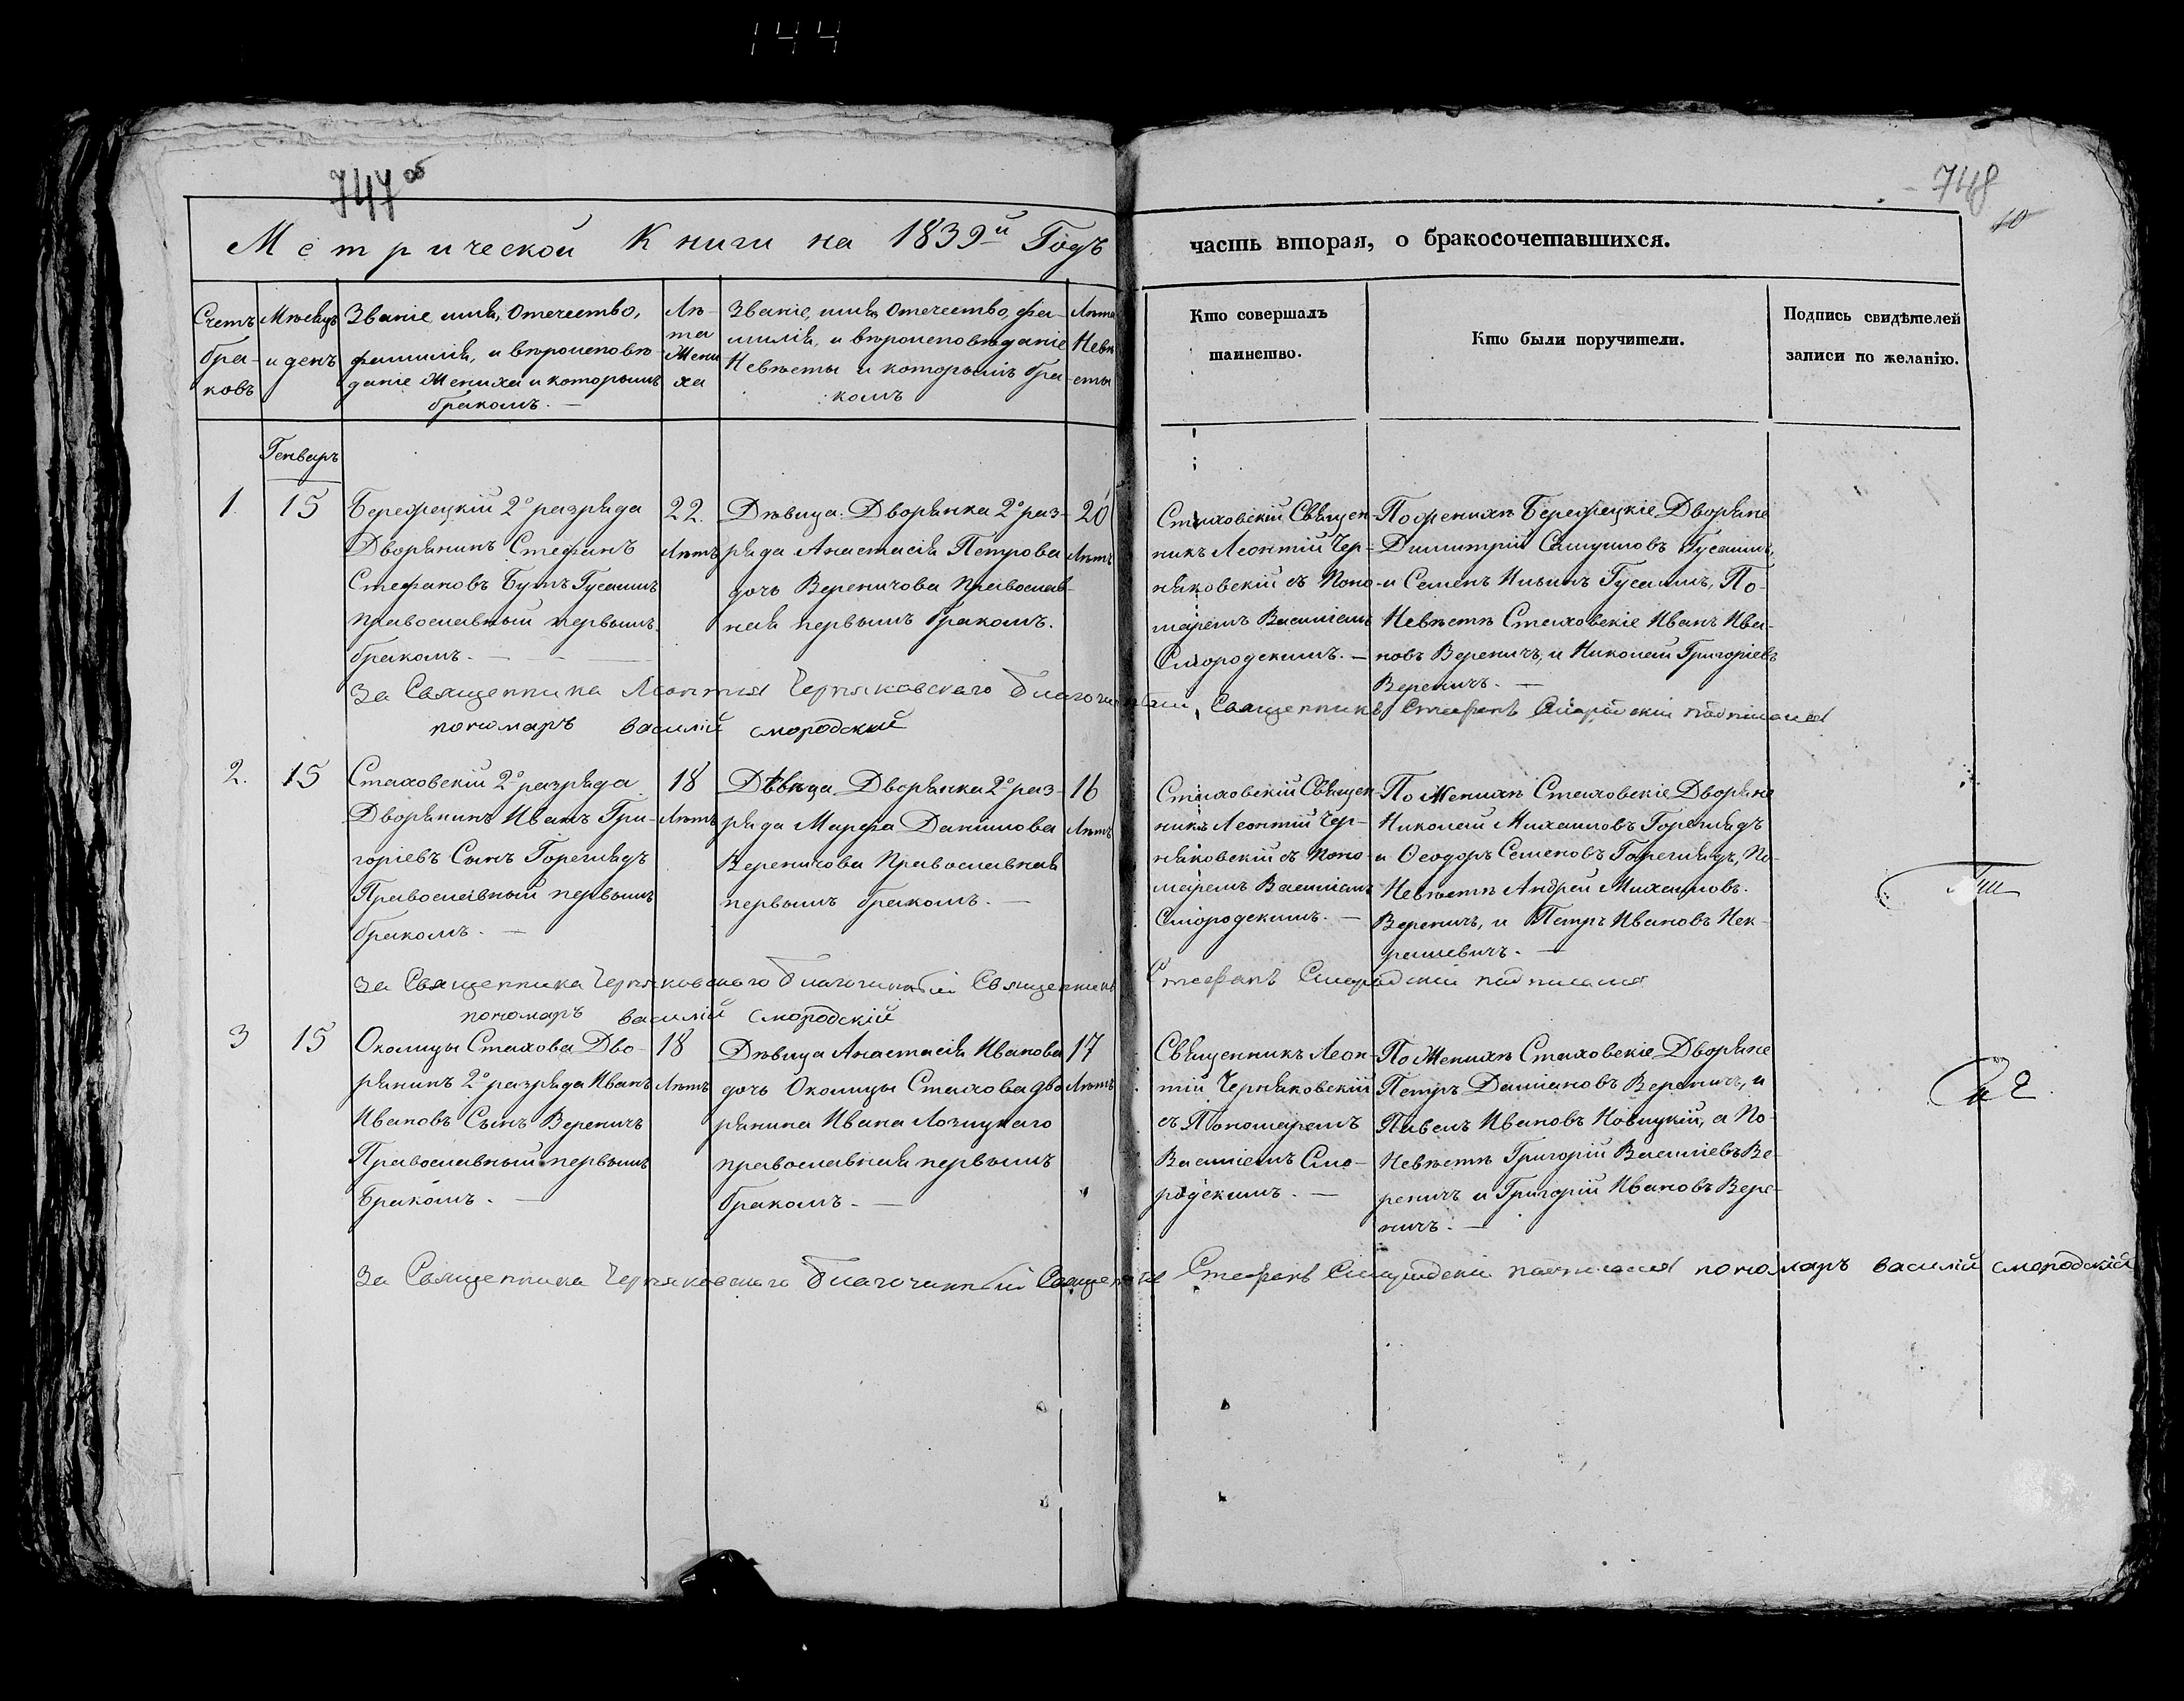 144
747 об
748
10
Метрической Книги на 1839й Годъ
часть вторая, о бракосочетавшихся.
Счетъ браковъ
Мѣсяцъ и день
Званіе, имя, Отечество,
фамилія, и вѣроисповѣ-
даніе Жениха и которымъ
бракомъ. —
Лѣ-
та
Жени
ха
Званіе, имя, Отечество, фа-
милія, и вѣроисповѣданіе
Невѣсты и которымъ бра-
комъ
Лѣта
Невѣ-
сты
Кто совершалъ
таинство.
Кто были поручители.
Подпись свидѣтелей
записи по желанію.
Генварь
1.
15
Бережецкій 2о разряда
Дворянинъ Стефанъ
Стефановъ Бутъ Гусаимъ
православный первымъ
бракомъ. —
22.
Лѣтъ
Дѣвица Дворянка 2о раз-
ряда Анастасія Петрова
дочь Вереничова Православ-
ная первымъ бракомъ.
20
Лѣтъ
Стаховскій Священ-
никъ Леонтій Чер-
няковскій съ Поно-
маремъ Василіемъ
Смородскимъ. —
По женихѣ Бережецкіе Дворяне
Димитрій Самуиловъ Гусаимъ,
и Семенъ Ильинъ Гусаимъ, По-
Невѣстѣ Стаховскіе Иванъ Ива-
новъ Вереничъ, и Николай Григоріевъ
Вереничъ. —
За Священника Леонтія Черняковскаго Благочинный Священникъ Стефанъ Смородскій подписался
пономаръ василій смородскій
2.
15
Стаховскій 2о разряда
Дворянинъ Иванъ Гри-
горіевъ Сынъ Гореглядъ
Православный первымъ
бракомъ. —
18
Лѣтъ
Дѣвица Дворянка 2о раз-
ряда Марфа Данилова
Вереничова Православная
первымъ бракомъ. —
16
Лѣтъ
Стаховскій Священ-
никъ Леонтій Чер-
няковскій съ Поно-
маремъ Василіемъ
Смородскимъ. —
По Женихѣ Стаховскіе Дворяне
Николай Михаиловъ Гореглядъ
и Ѳеодоръ Семеновъ Гореглядъ, По-
Невѣстѣ Андрей Михаиловъ.
Вереничъ, и Петръ Ивановъ Нек-
рашевичъ. —
За Священника Черняковскаго Благочинный Священникъ Стефанъ Смородскій подписался
пономаръ василій смородскій
3
15
Околицы Стахова Дво-
рянинъ 2о разряда Иванъ
Ивановъ Сынъ Вереничъ
Православный первымъ
Бракомъ. —
18
Лѣтъ
Дѣвица Анастасія Иванова
дочь Околицы Стахова дво
рянина Ивана Лозицкаго
православная первымъ
бракомъ. —
17
Лѣтъ
Священникъ Леон-
тій Черняковскій
съ Пономаремъ
Василіемъ Смо-
родскимъ. —
По Женихѣ Стаховскіе Дворяне
Петръ Даміановъ Вереничъ, и
Павелъ Ивановъ Новицкій, а По-
Невѣстѣ Григорій Василіевъ Ве-
реничъ и Григорій Ивановъ Вере-
ничъ. —
За Священника Черняковскаго Благочинный Священникъ Стефанъ Смородскій подписался пономаръ василій смородскій